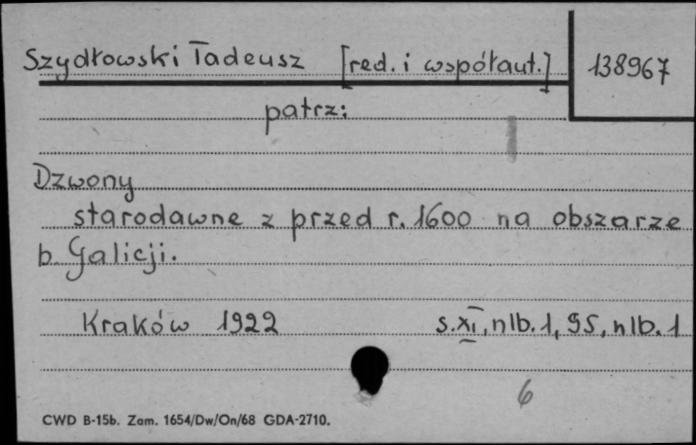 Szydłowski Tadeusz [red. i współaut.] 138967
patrz:
Dzwony
starodawne z przed r. 1600 na obszarze
b. Galicji.
Kraków 1922 s. XI, nlb. 1, 95, nlb. 1
6
CWD B-15b. Zam. 1654/Dw/On/68 GDA-2710.